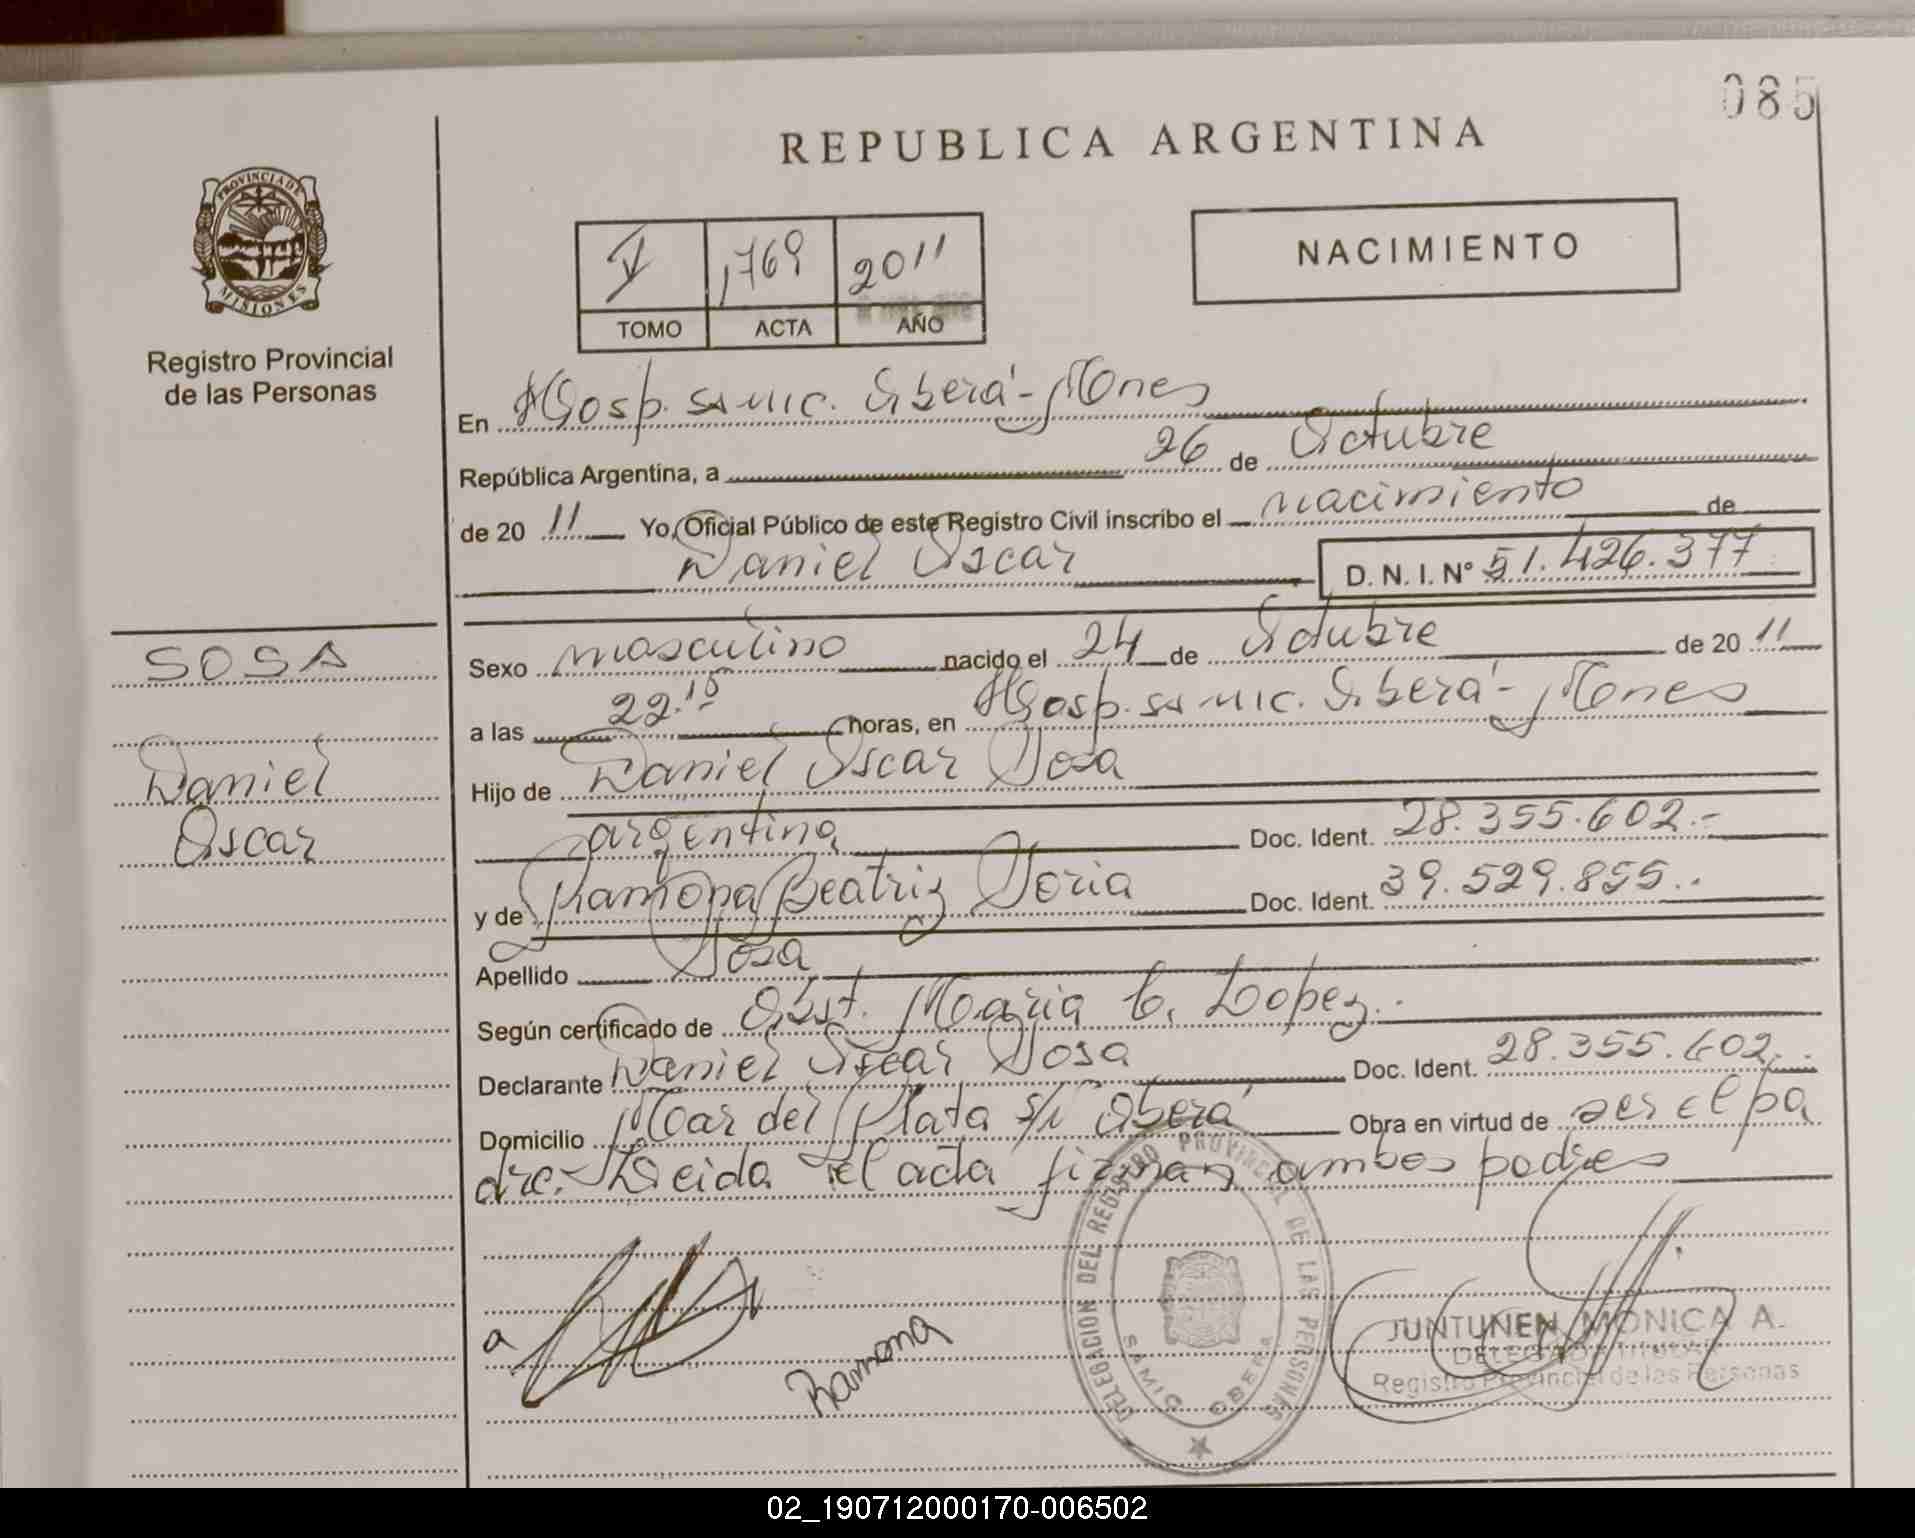 085
REPUBLICA ARGENTINA
PROVINCIA DE
MISIONES
Registro Provincial
de las Personas
V 1769 2011
TOMO ACTA AÑO
NACIMIENTO
En Hosp. SAMIC. Oberá - Mones
República Argentina, a 26 de Octubre
de 2011 Yo, Oficial Público de este Registro Civil inscribo el nacimiento de
Daniel Oscar D. N. I. N° 51.426.377
SOSA
Daniel
Oscar
Sexo masculino nacido el 24 de Octubre de 2011
a las 22.15 horas, en Hosp. SAMIC. Oberá - Mones
Hijo de Daniel Oscar Sosa
argentina Doc. Ident. 28.355.602.-
y de Ramona Beatriz Soria Doc. Ident. 39.529.855..
Apellido Sosa
Según certificado de Obst. Maria C. Lopez.
Declarante Daniel Oscar Sosa Doc. Ident. 28.355.602..
Domicilio Mar del Plata s/n Oberá Obra en virtud de ser el pa
dre.- Leida el acta firman ambos padres
Ramona
DELEGACION DEL REGISTRO PROVINCIAL DE LAS PERSONAS
SAMIC OBERA
JUNTUNEN MONICA A.
DELEGADA TITULAR
Registro Provincial de las Personas
02_190712000170-006502